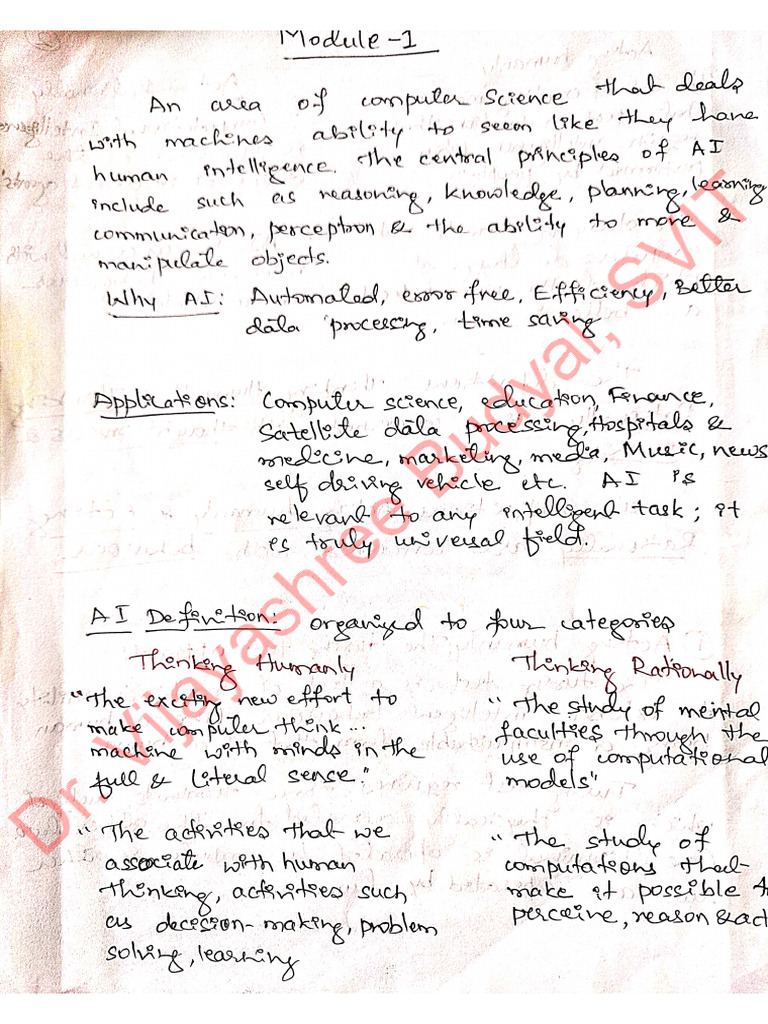 Module-1
An area of computer Science that deals
with machines ability to seem like they have
human intelligence. The central principles of AI
include such as reasoning, knowledge, planning, learning
communication, perception & the ability to more &
manipulate objects.
Why AI: Automated, error free, Efficiency, Better
data processing, time saving
Applications: Computer science, education, Finance,
Satellite data processing, Hospitals &
medicine, marketing, media, Music, news
self driving vehicle etc. AI is
relevant to any intelligent task; it
is truly universal field.
AI Definition: organized to four categories
Thinking Humanly
"The exciting new effort to
make computer think...
machine with minds in the
full & literal sense."
"The activities that we
associate with human
thinking, activities such
as decision-making, problem
solving, learning
Thinking Rationally
"The study of mental
faculties through the
use of computational
models"
"The study of
computations that
make it possible t
perceive, reason & act
Dr. Vijayashree Budyal, SVIT